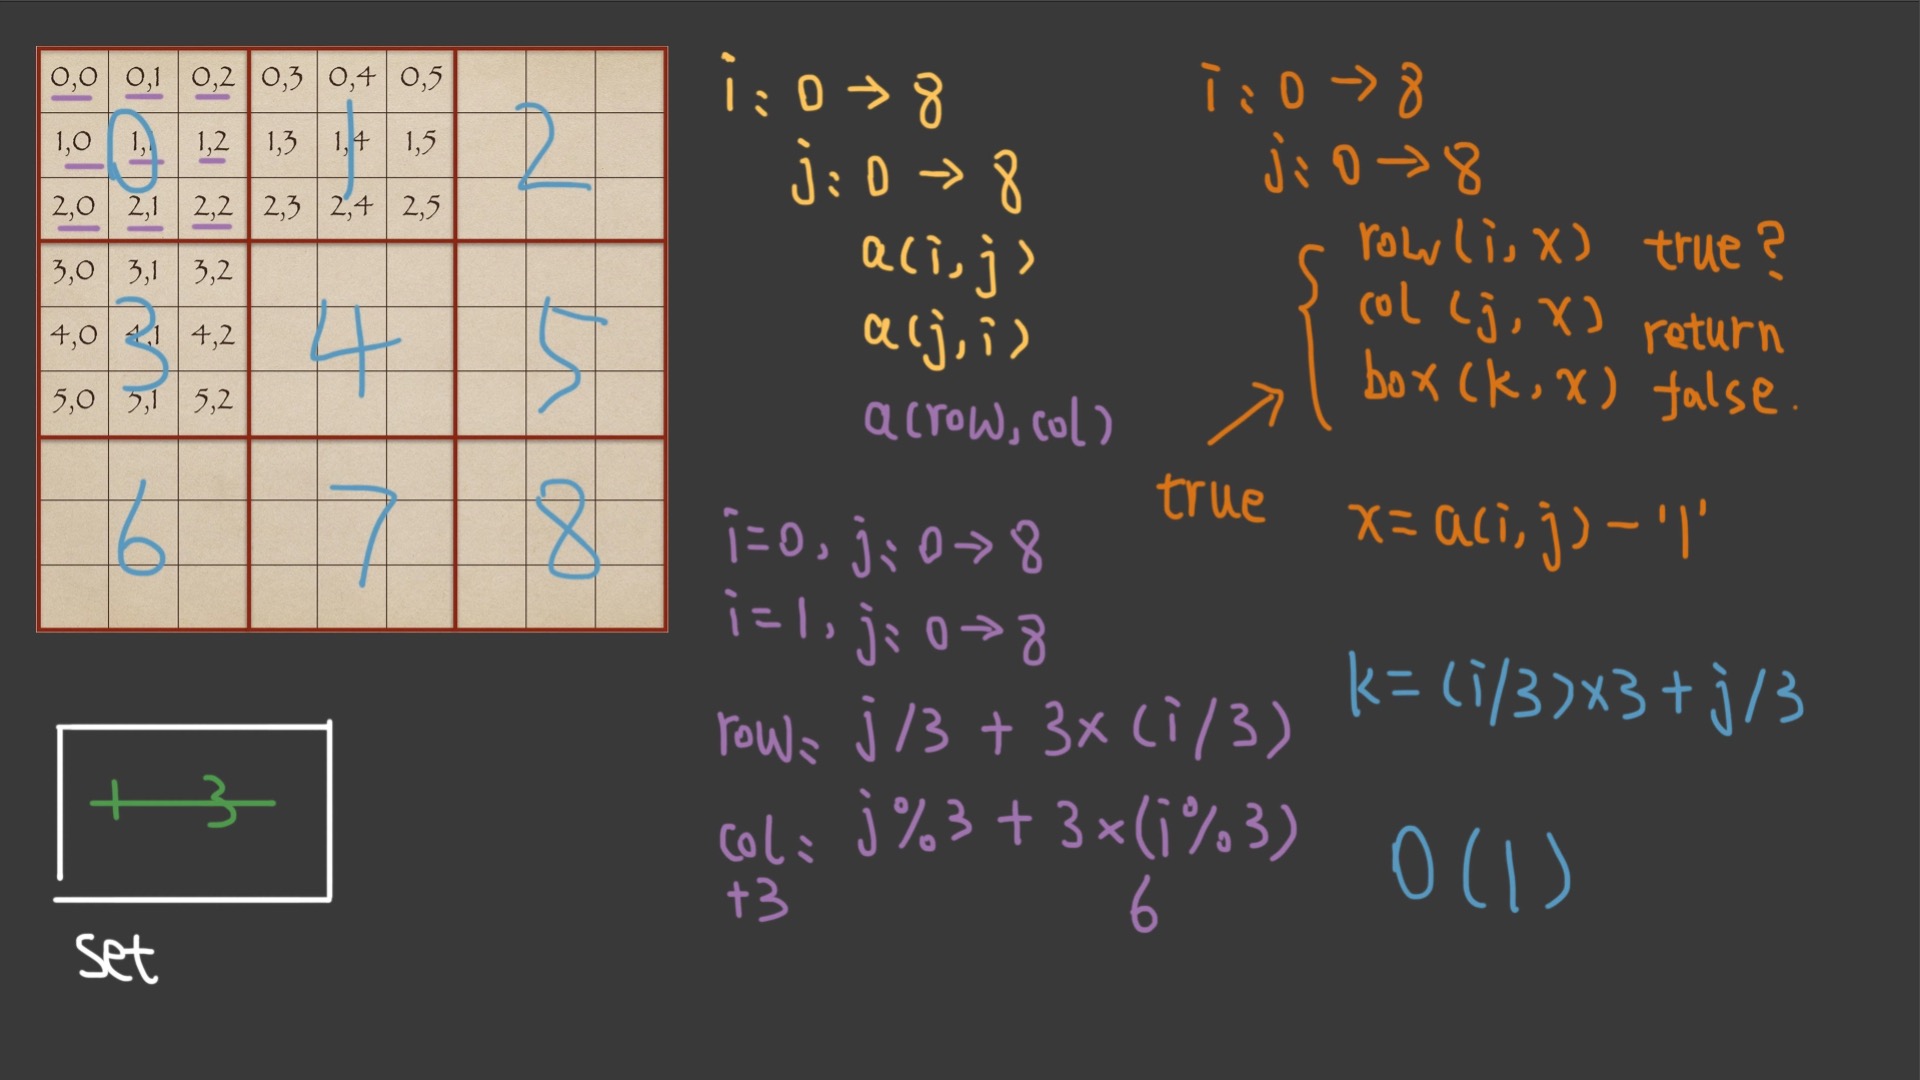 0,0 0,1 0,2 0,3 0,4 0,5
1,0 1,1 1,2 1,3 1,4 1,5
2,0 2,1 2,2 2,3 2,4 2,5
3,0 3,1 3,2
4,0 4,1 4,2
5,0 5,1 5,2
0 1 2
3 4 5
6 7 8
+ 3
set
i: 0 → 8
j: 0 → 8
a(i, j)
a(j, i)
a(row, col)
i=0, j: 0 → 8
i=1, j: 0 → 8
row: j/3 + 3×(i/3)
col: j%3 + 3×(i%3)
+3 6
i: 0 → 8
j: 0 → 8
row(i, x) true?
col (j, x) return
box(k, x) false.
true
x = a(i, j) - '1'
k = (i/3)×3 + j/3
O(1)